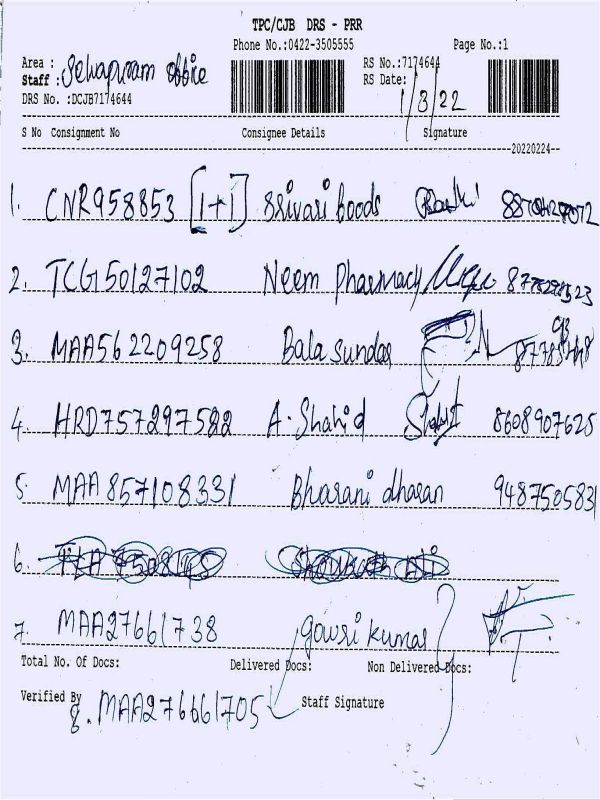 TPC/CJB DRS - PRR
Phone No.:0422-3505555 Page No.:1
Area : Selvapuram office
Staff :
RS No.:7174644
RS Date: 1/3/22
DRS No. :DCJB7174644
S No Consignment No Consignee Details Signature
20220224
1. CNR958853 [1+1] Srivari foods
2. TCG150127102 Neem Pharmacy
3. MAA562209258 Bala sundar
4. HRD757297582 A. Shahid 8608907625
5. MAA857108331 Bharani dharan 9487505831
6.
7. MAA27661738 gowri kumar
Total No. Of Docs: Delivered Docs: Non Delivered Docs:
Verified By Staff Signature
8. MAA276661705